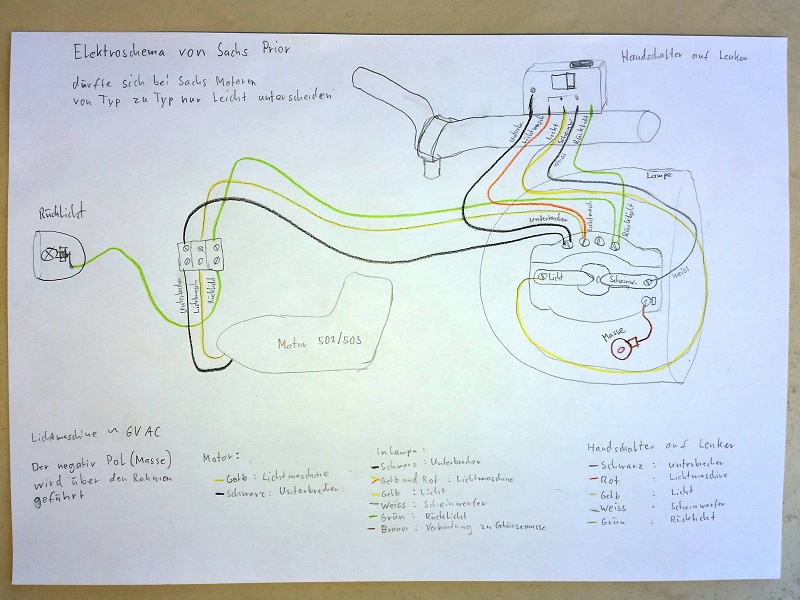 Elektroschema von Sachs Prior
dürfte sich bei Sachs Motoren
von Typ zu Typ nur Leicht unterscheiden
Handschalter auf Lenker
Unterbr.
Lichtmasch
Licht
Scheinw.
weiss
Rücklicht
Lampe
Rücklicht
Unterbrecher
Lichtmasch
Rücklicht
Licht
Scheinw.
weiss
Masse
Unterbrecher
Lichtmasch
Rücklicht
Motor 502/503
Lichtmaschine ~ 6V AC
Der negativ Pol (Masse)
wird über den Rahmen
geführt
Motor:
Gelb : Lichtmaschine
Schwarz : Unterbrecher
In Lampe :
Schwarz : Unterbrecher
Gelb und Rot : Lichtmaschine
Gelb : Licht
Weiss : Scheinwerfer
Grün : Rücklicht
Braun : Verbindung zu Gehäusemasse
Handschalter auf Lenker
Schwarz : unterbrecher
Rot : Lichtmaschine
Gelb : Licht
Weiss : Scheinwerfer
Grün : Rücklicht